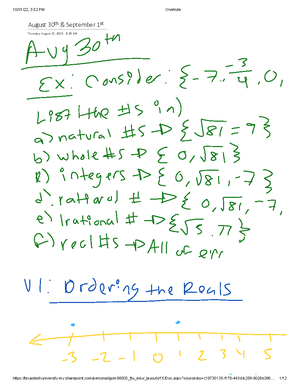 10/31/22, 3:52 PM OneNote
August 30th & September 1st
Aug 30th
Ex: Consider: {-7, -3/4, 0,
List the #s in)
a) natural #s → {√81 = 9}
b) whole #s → {0, √81}
integers → {0, √81, -7}
rational # → {0, √81, -7,
e) Irrational # → {√5, π}
f) real #s → All of em
V1: Ordering the Reals
-3 -2 -1 0 1 2 3 4
1/12